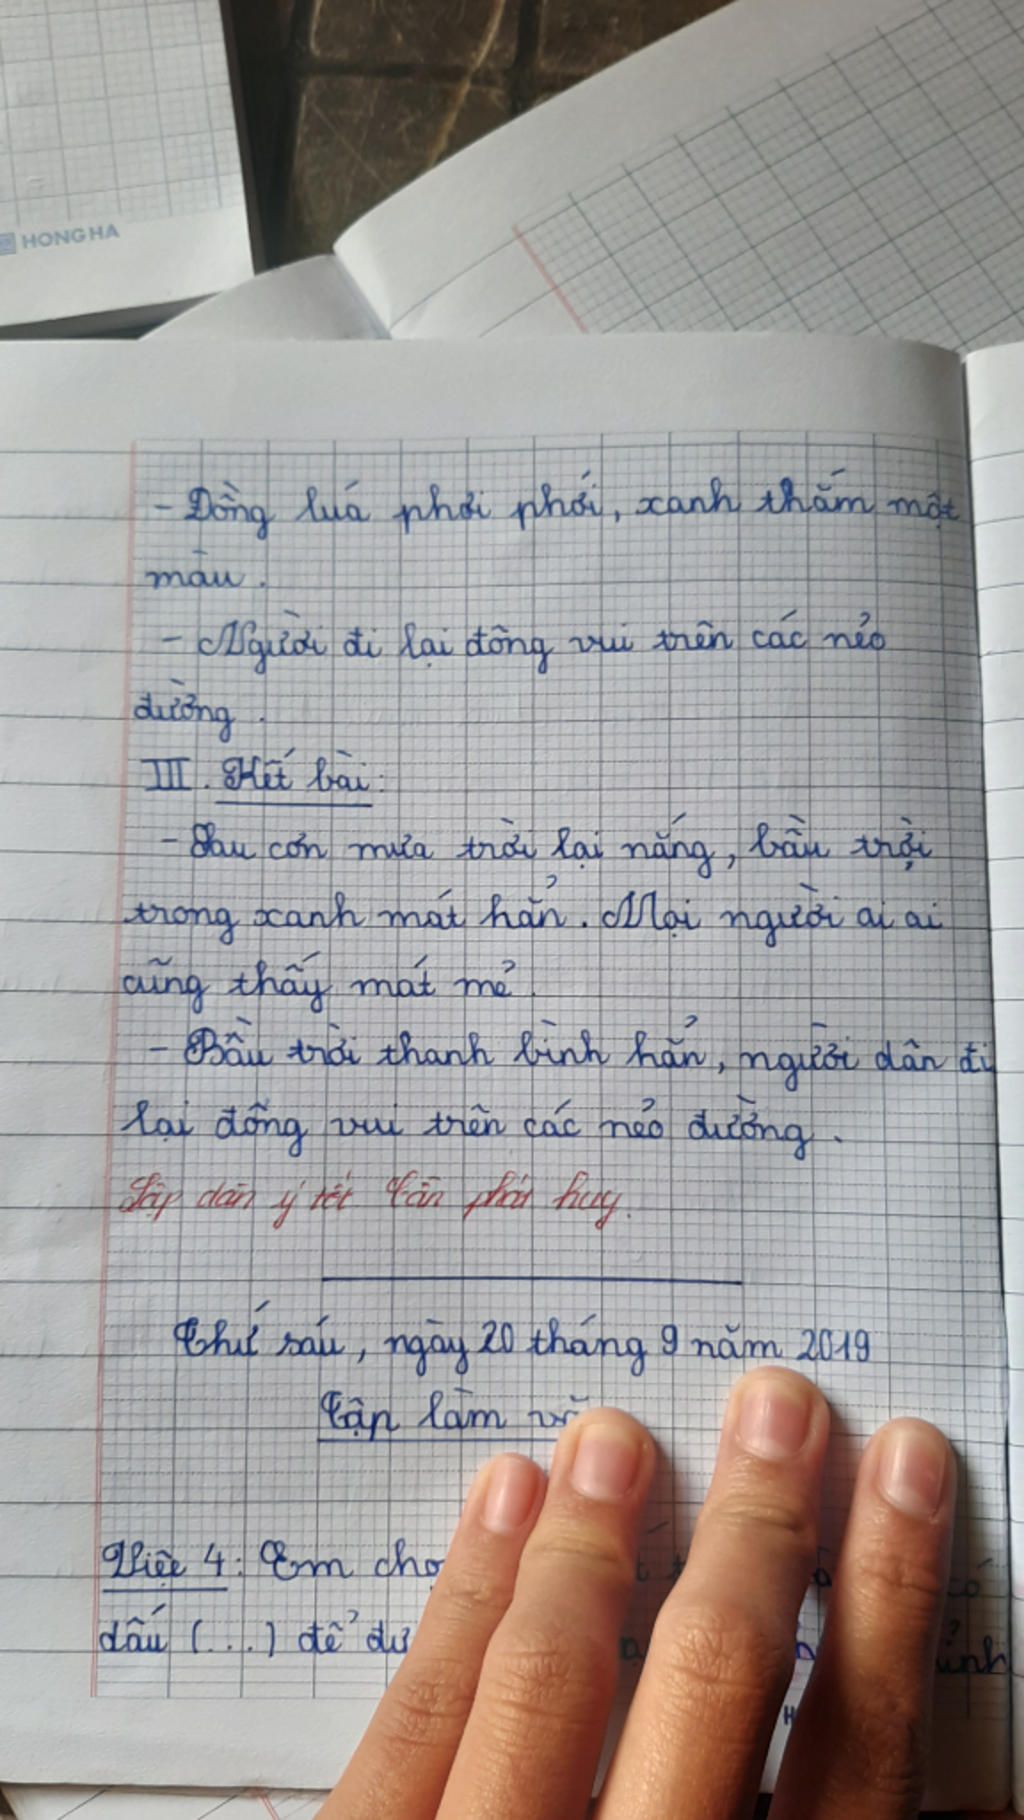 HONG HA
- Đồng luá phơi phới, xanh thắm một
màu.
- Người đi lại đông vui trên các nẻo
đường.
III. Kết bài:
- Sau cơn mưa trời lại nắng, bầu trời
trong xanh mát hẳn. Mọi người ai ai
cũng thấy mát mẻ.
- Bầu trời thanh bình hẳn, người dân đi
lại đông vui trên các nẻo đường.
Lập dàn ý tốt Cần phát huy.
Thứ sáu, ngày 20 tháng 9 năm 2019
Tập làm
Việc 4: Em
dấu (...) để